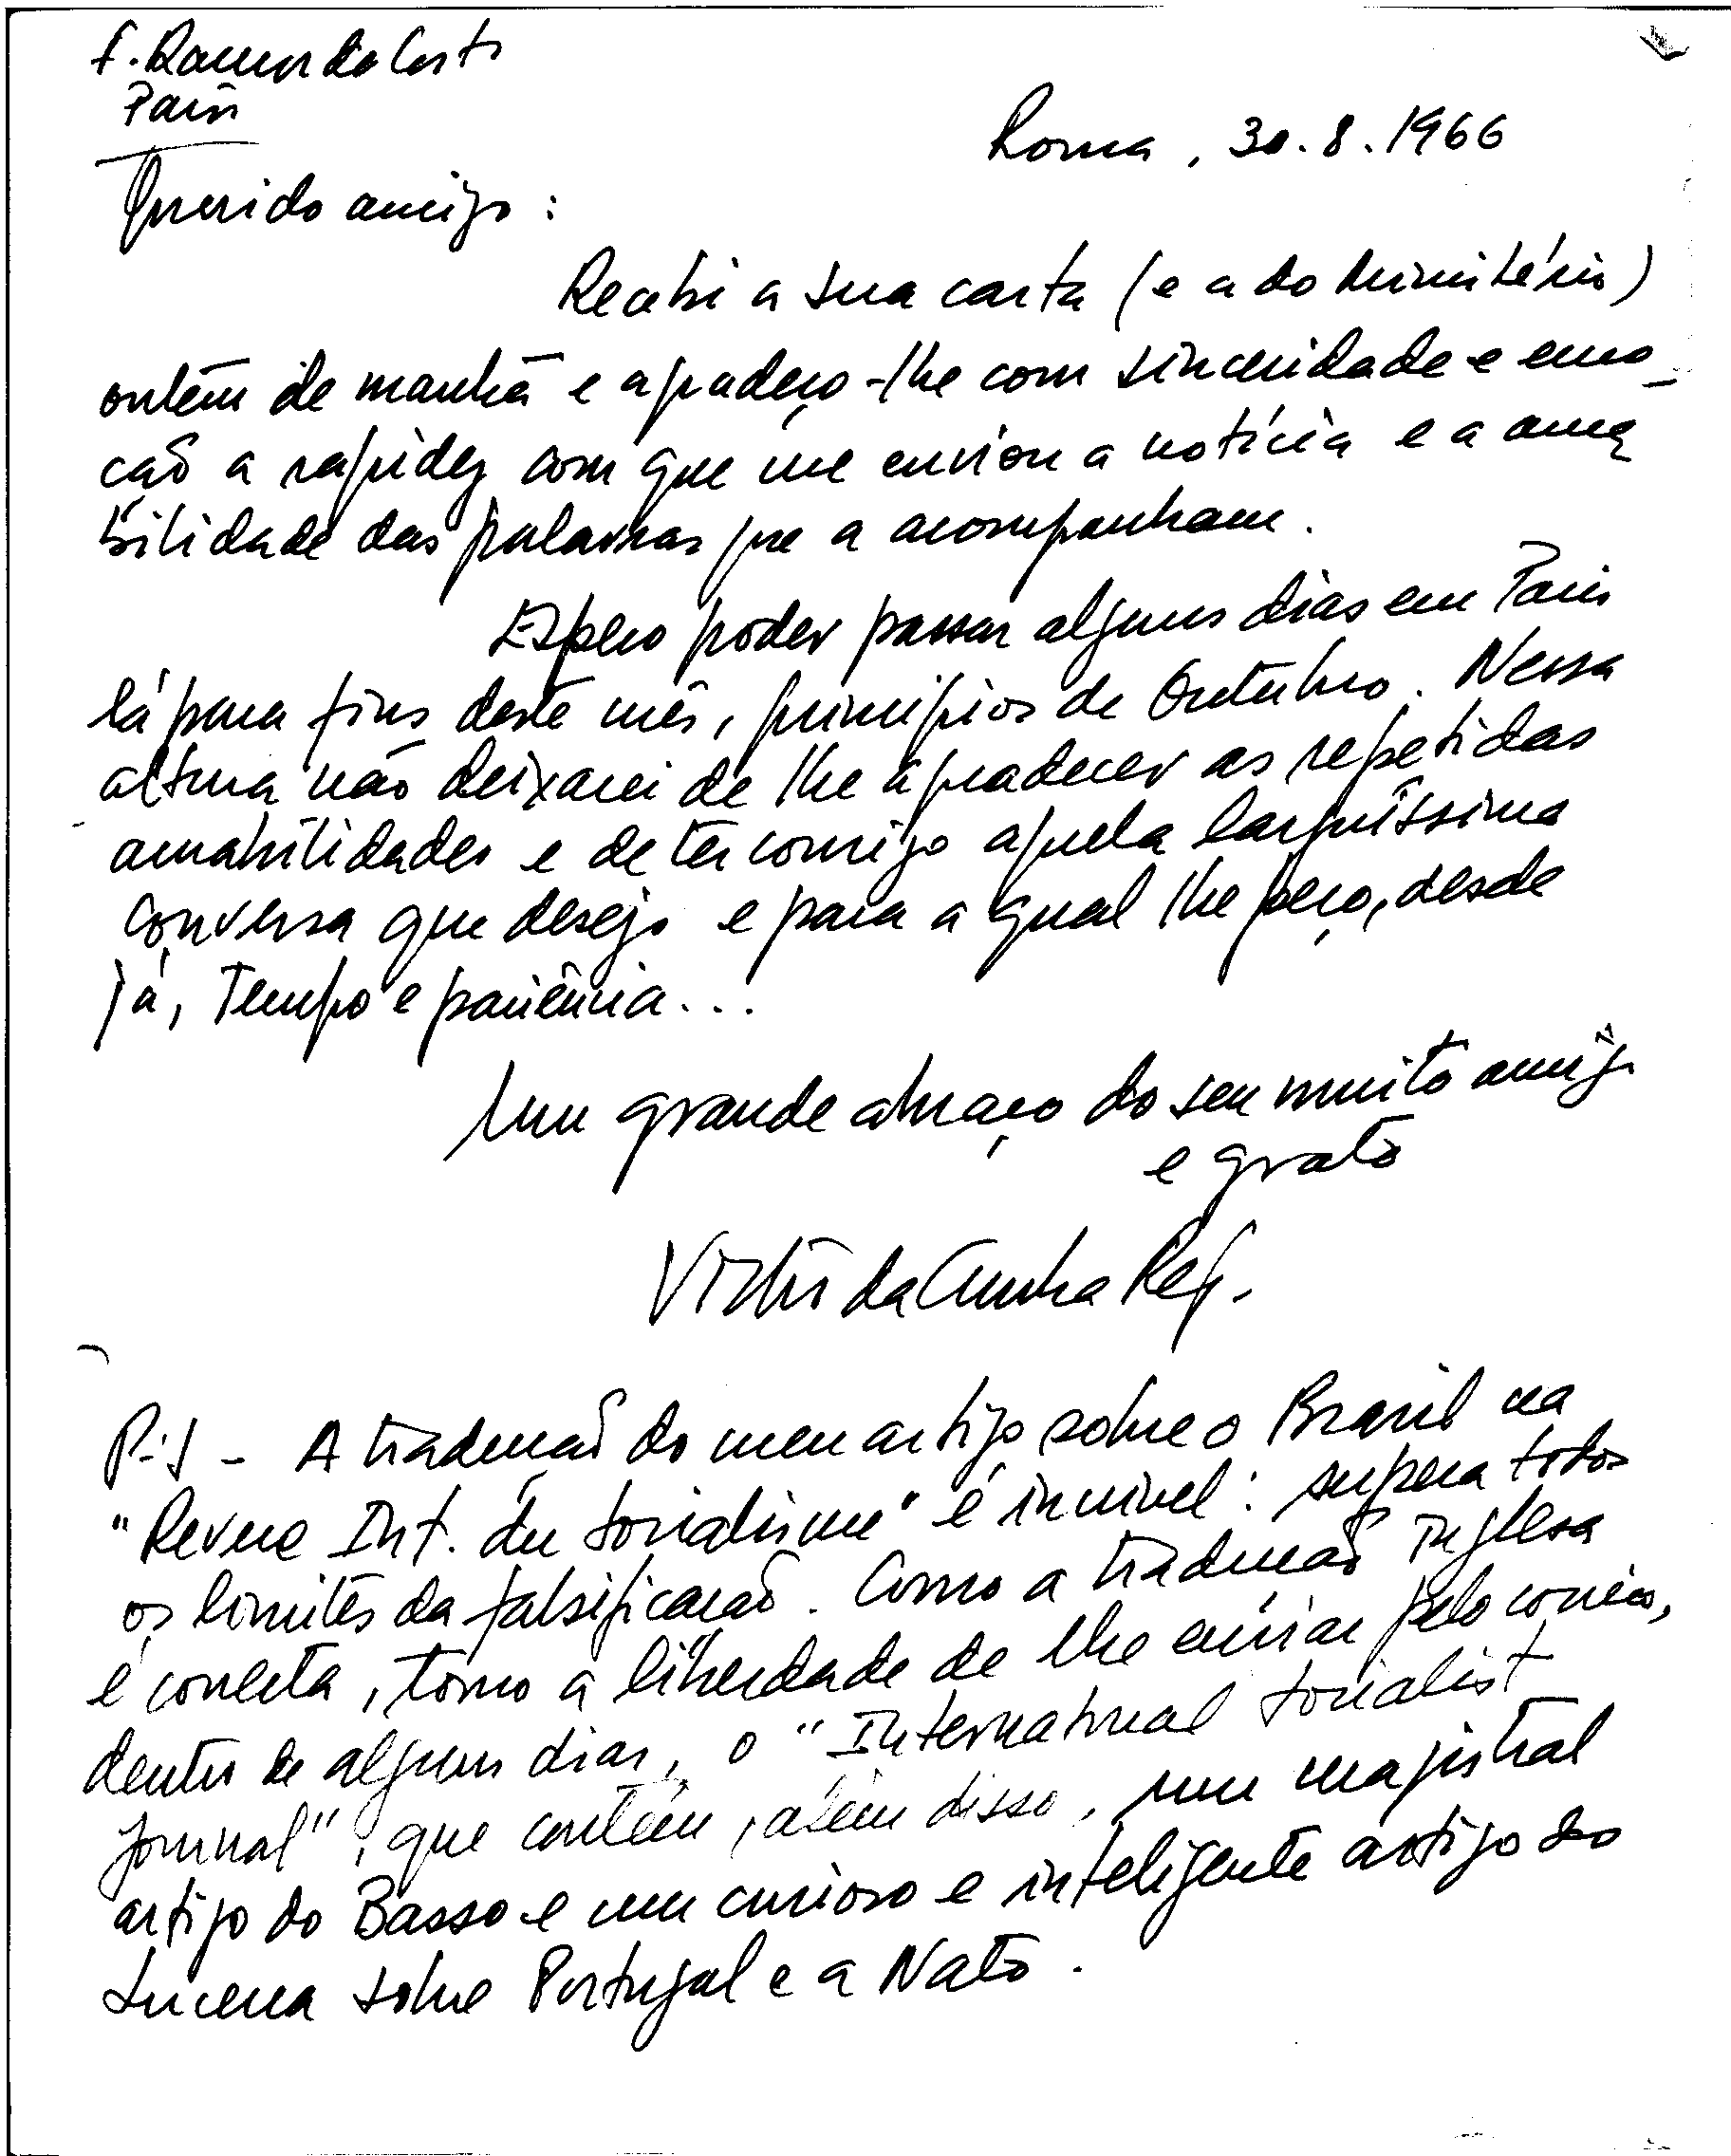 F. Ramos da Costa
Paris
Roma, 30.8.1966
Querido amigo:
Recebi a sua carta (e a do Ministério)
ontem de manhã e agradeço-lhe com sinceridade e emo-
ção a rapidez com que me enviou a notícia e a ama
bilidade das palavras que a acompanham.
Espero poder passar alguns dias em Paris
lá para fins deste mês, princípios de Outubro. Nessa
altura não deixarei de lhe agradecer as repetidas
amabilidades e de ter consigo aquela larguíssima
conversa que desejo e para a qual lhe peço, desde
já, tempo e paciência...
Um grande abraço do seu muito amigo
e grato
Victor da Cunha Rego.
P.S - A tradução do meu artigo sobre o Brasil na
"Revue Int. du Socialisme" é incrivel: supera todos
os limites da falsificação. Como a tradução inglesa
é correcta, tomo a liberdade de lhe enviar pelo correio,
dentro de alguns dias, o "International Socialist
Journal", que contém, além disso, um magistral
artigo do Basso e um curioso e inteligente artigo do
Lucena sobre Portugal e a Nato.